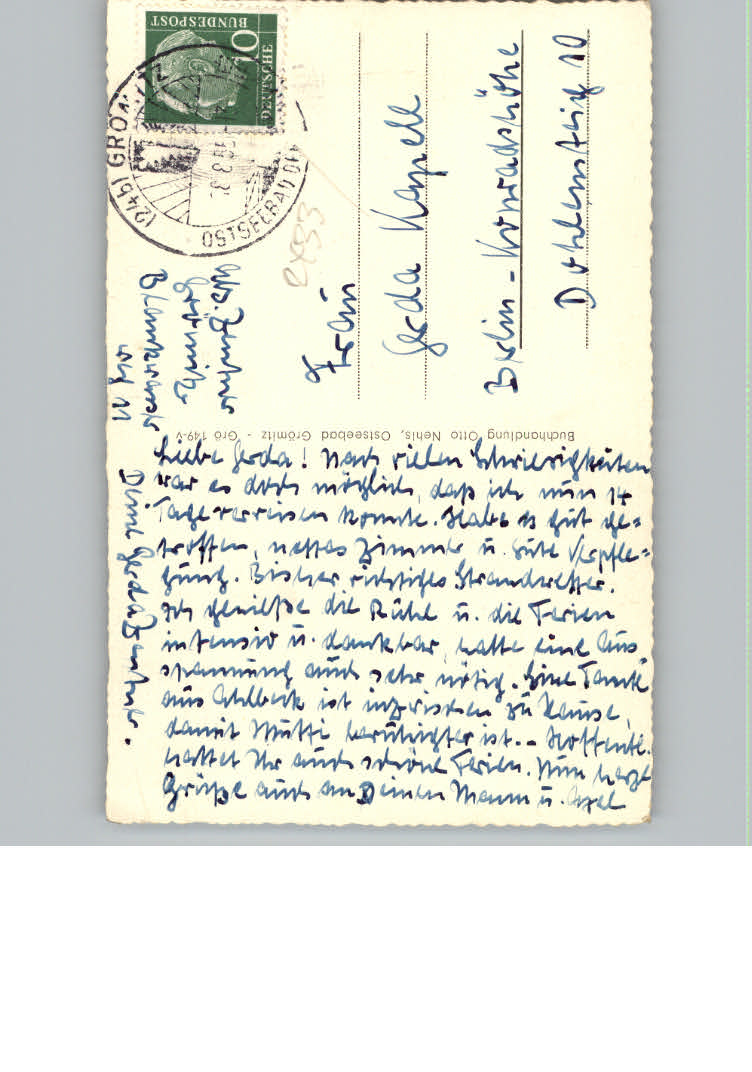 Liebe Gerda! Nach vielen Schwierigkeiten
war es doch möglich, daß ich nun 14
Tage verreisen konnte. Habe es gut ge-
troffen, nettes Zimmer u. gute Verpfle-
gung. Bisher richtiges Strandwetter.
Ich genieße die Ruhe u. die Ferien
intensiv u. dankbar, hatte eine Aus
spannung auch sehr nötig. Eine Tante
aus Ahlbeck ist inzwischen zu Hause,
damit Mutti beruhigter ist. - Hoffentl.
hattet Ihr auch schöne Ferien. Nun herzl
Grüße auch an Deinen Mann u. Axel
Deine Gerda
Abs.
Grömitz
11
Buchhandlung Otto Nehls, Ostseebad Grömitz - Grö 149-v
Frau
Gerda Kapelle
Berlin-Konradshöhe
10
DEUTSCHE
BUNDESPOST
10
(24b) GRÖMITZ
OSTSEEBAD